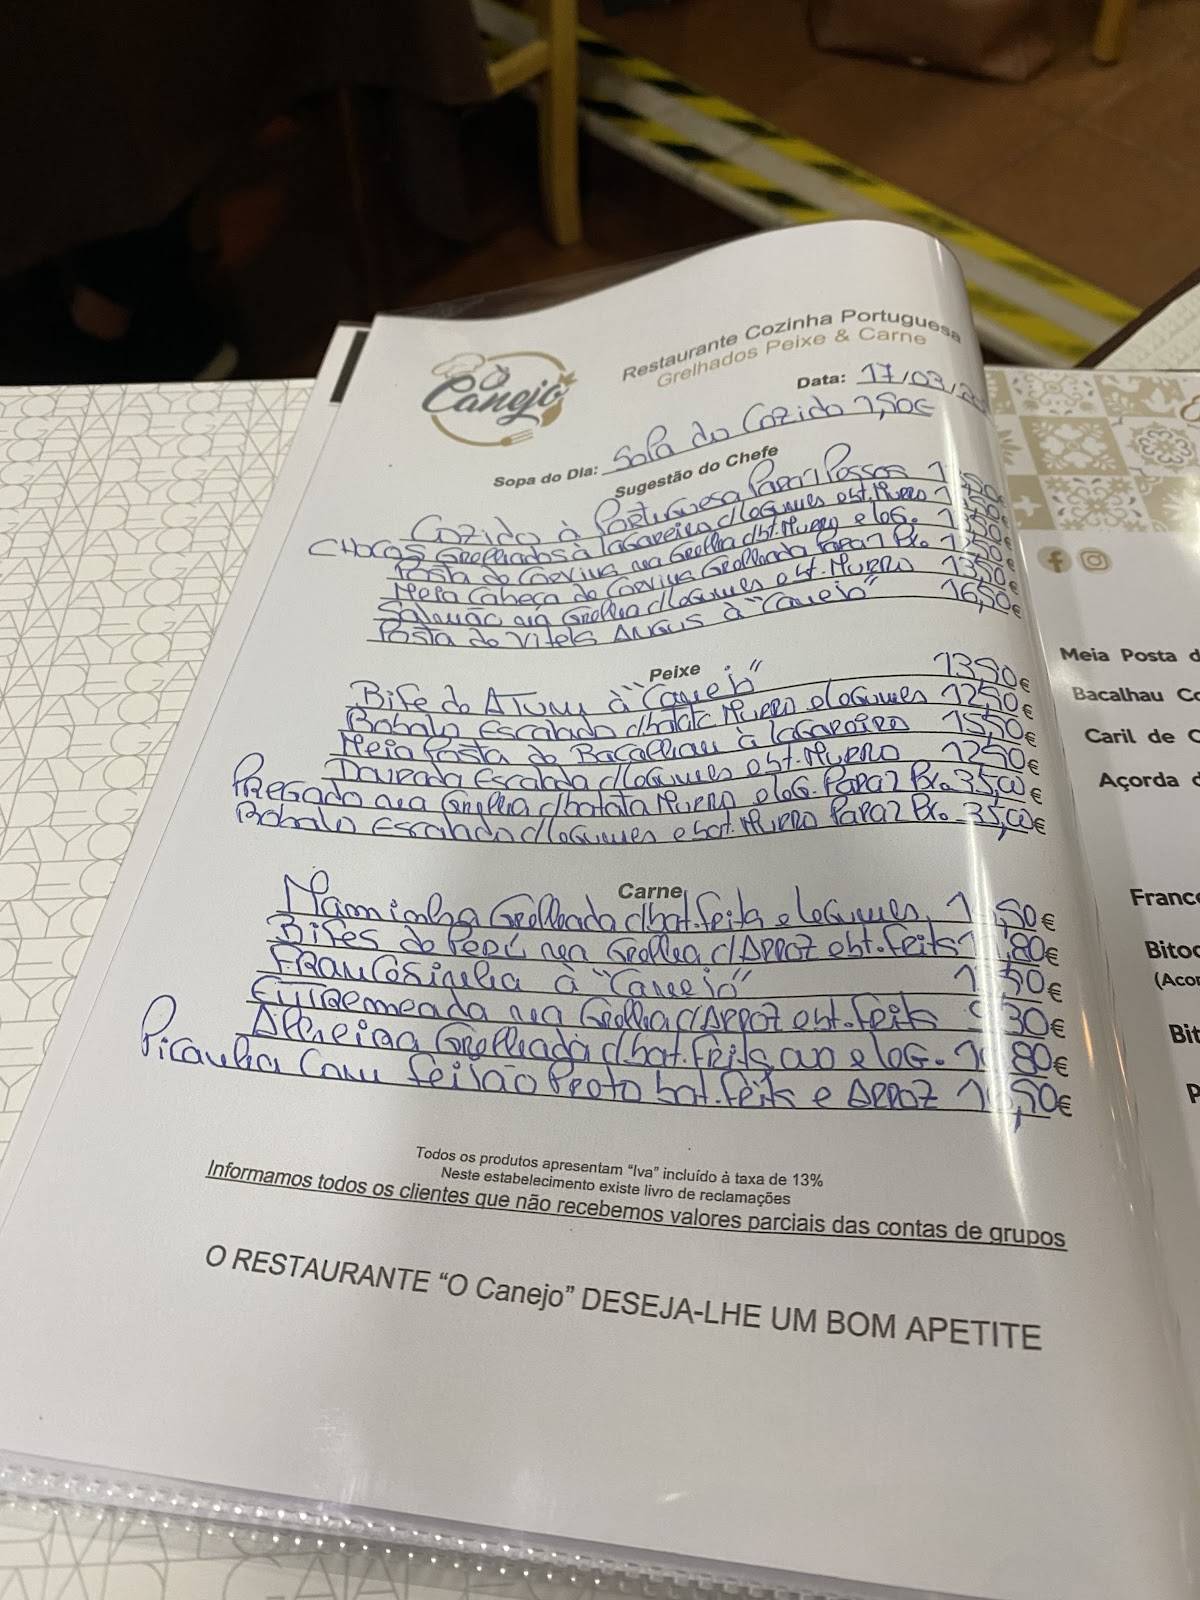 Canejo
Restaurante Cozinha Portuguesa
Grelhados Peixe & Carne
Data: 17/03/20
Sopa do Dia: Sopa do Cozido 1,50€
Sugestão do Chefe
Cozido à Portuguesa Para 1 Pessoa 13,50€
CHOCOS Grelhados à lagareiro c/legumes e bt. Murro 13,50€
Posta de Corvina na Grelha c/bt. Murro e leg. 13,50€
Meia Cabeça de Corvina Grelhada Para 1 Px. 13,50€
Salmão na Grelha c/legumes e bt. Murro 13,50€
Posta de Vitela Angus à "Canejo" 16,50€
Peixe
Bife de Atum à "Canejo" 13,90€
Robalo Escalado c/batata Murro e legumes 12,50€
Meia Posta de Bacalhau à lagareiro 15,50€
Dourada Escalada c/legumes e bt. Murro 12,50€
Pregado na Grelha c/batata Murro e leg. Para 2 Px. 35,00€
Robalo Escalado c/legumes e bat. Murro Para 2 Px. 35,00€
Carne
Maminha Grelhada c/bat. frita e legumes
Bifes de Peru na Grelha c/Arroz e bt. frits
FRANCESinha à "Canejo"
Entremeada na Grelha c/Arroz e bt. frits
Alheira Grelhada c/bat. frits, ovo e leg.
Picanha Com feijão Preto bat. frits e Arroz
Todos os produtos apresentam "Iva" incluído à taxa de 13%
Neste estabelecimento existe livro de reclamações
Informamos todos os clientes que não recebemos valores parciais das contas de grupos
O RESTAURANTE "O Canejo" DESEJA-LHE UM BOM APETITE
Meia Posta d
Bacalhau Co
Caril de
Açorda d
France
Bitoc
(Acor
Bit
P